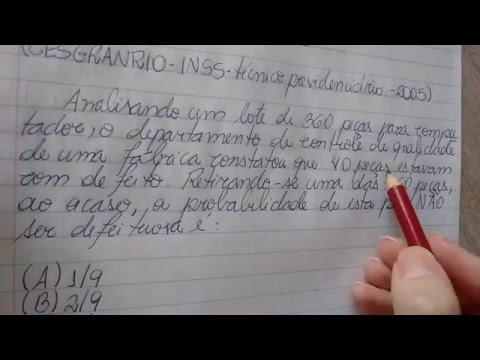 (CESGRANRIO-INSS-técnico previdenciário-2005)
Analisando um lote de 360 peças para compu
tador, o departamento de controle de qualidade
de uma fábrica constatou que 40 peças estavam
com defeito. Retirando-se uma das 0 peças,
ao acaso, a probabilidade de esta NÃO
ser defeituosa é:
(A) 1/9
(B) 2/9